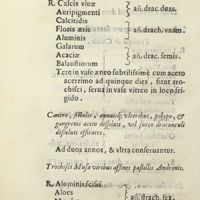 R. Calcis viuæ
Auripigmenti } añ. drac. duas.
Calcitidis
Floris æris } añ. drach. vnam.
Aluminis
Gallarum
Acaciæ } añ. drac. semis.
Balaustiorum
Tere in vase æneo subtilissime cum aceto
acerrimo ad quinque dies, fiant trochisci, serua in vase vitreo in loco frigido.
Cancro, fistulis, vlceribus, polypo, &
gangrenis aceto dissoluti, vel succo
dissoluti efficaces.
Ad duos annos, & vltra conseruantur.
Trochisci Musa viribus affines pastillis Andronis.
R. Aluminis scissi
Aloes
añ. drach. sex.